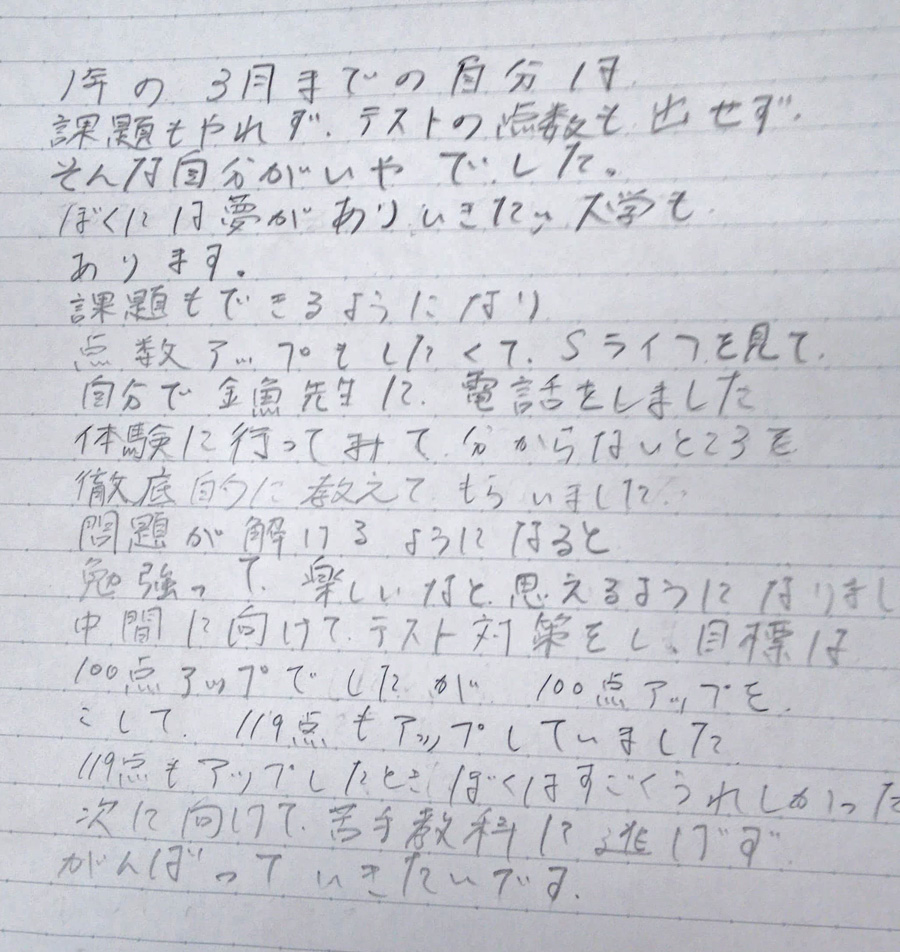 1年の3月までの自分は
課題もやれず、テストの点数も出せず、
そんな自分がいやでした。
ぼくには夢がありいきたい大学も
あります。
課題もできるようになり
点数アップもしたくて、Sライフを見て、
自分で金魚先生に、電話をしました
体験に行ってみて分からないところを
徹底的に教えてもらいました。
問題が解けるようになると
勉強って、楽しいなと思えるようになりまし
中間に向けて、テスト対策をし、目標は
100点アップでしたが 100点アップを、
こして、119点もアップしていました
119点もアップしたときぼくはすごくうれしかった
次に向けて、苦手教科に逃げず
がんばっていきたいです。